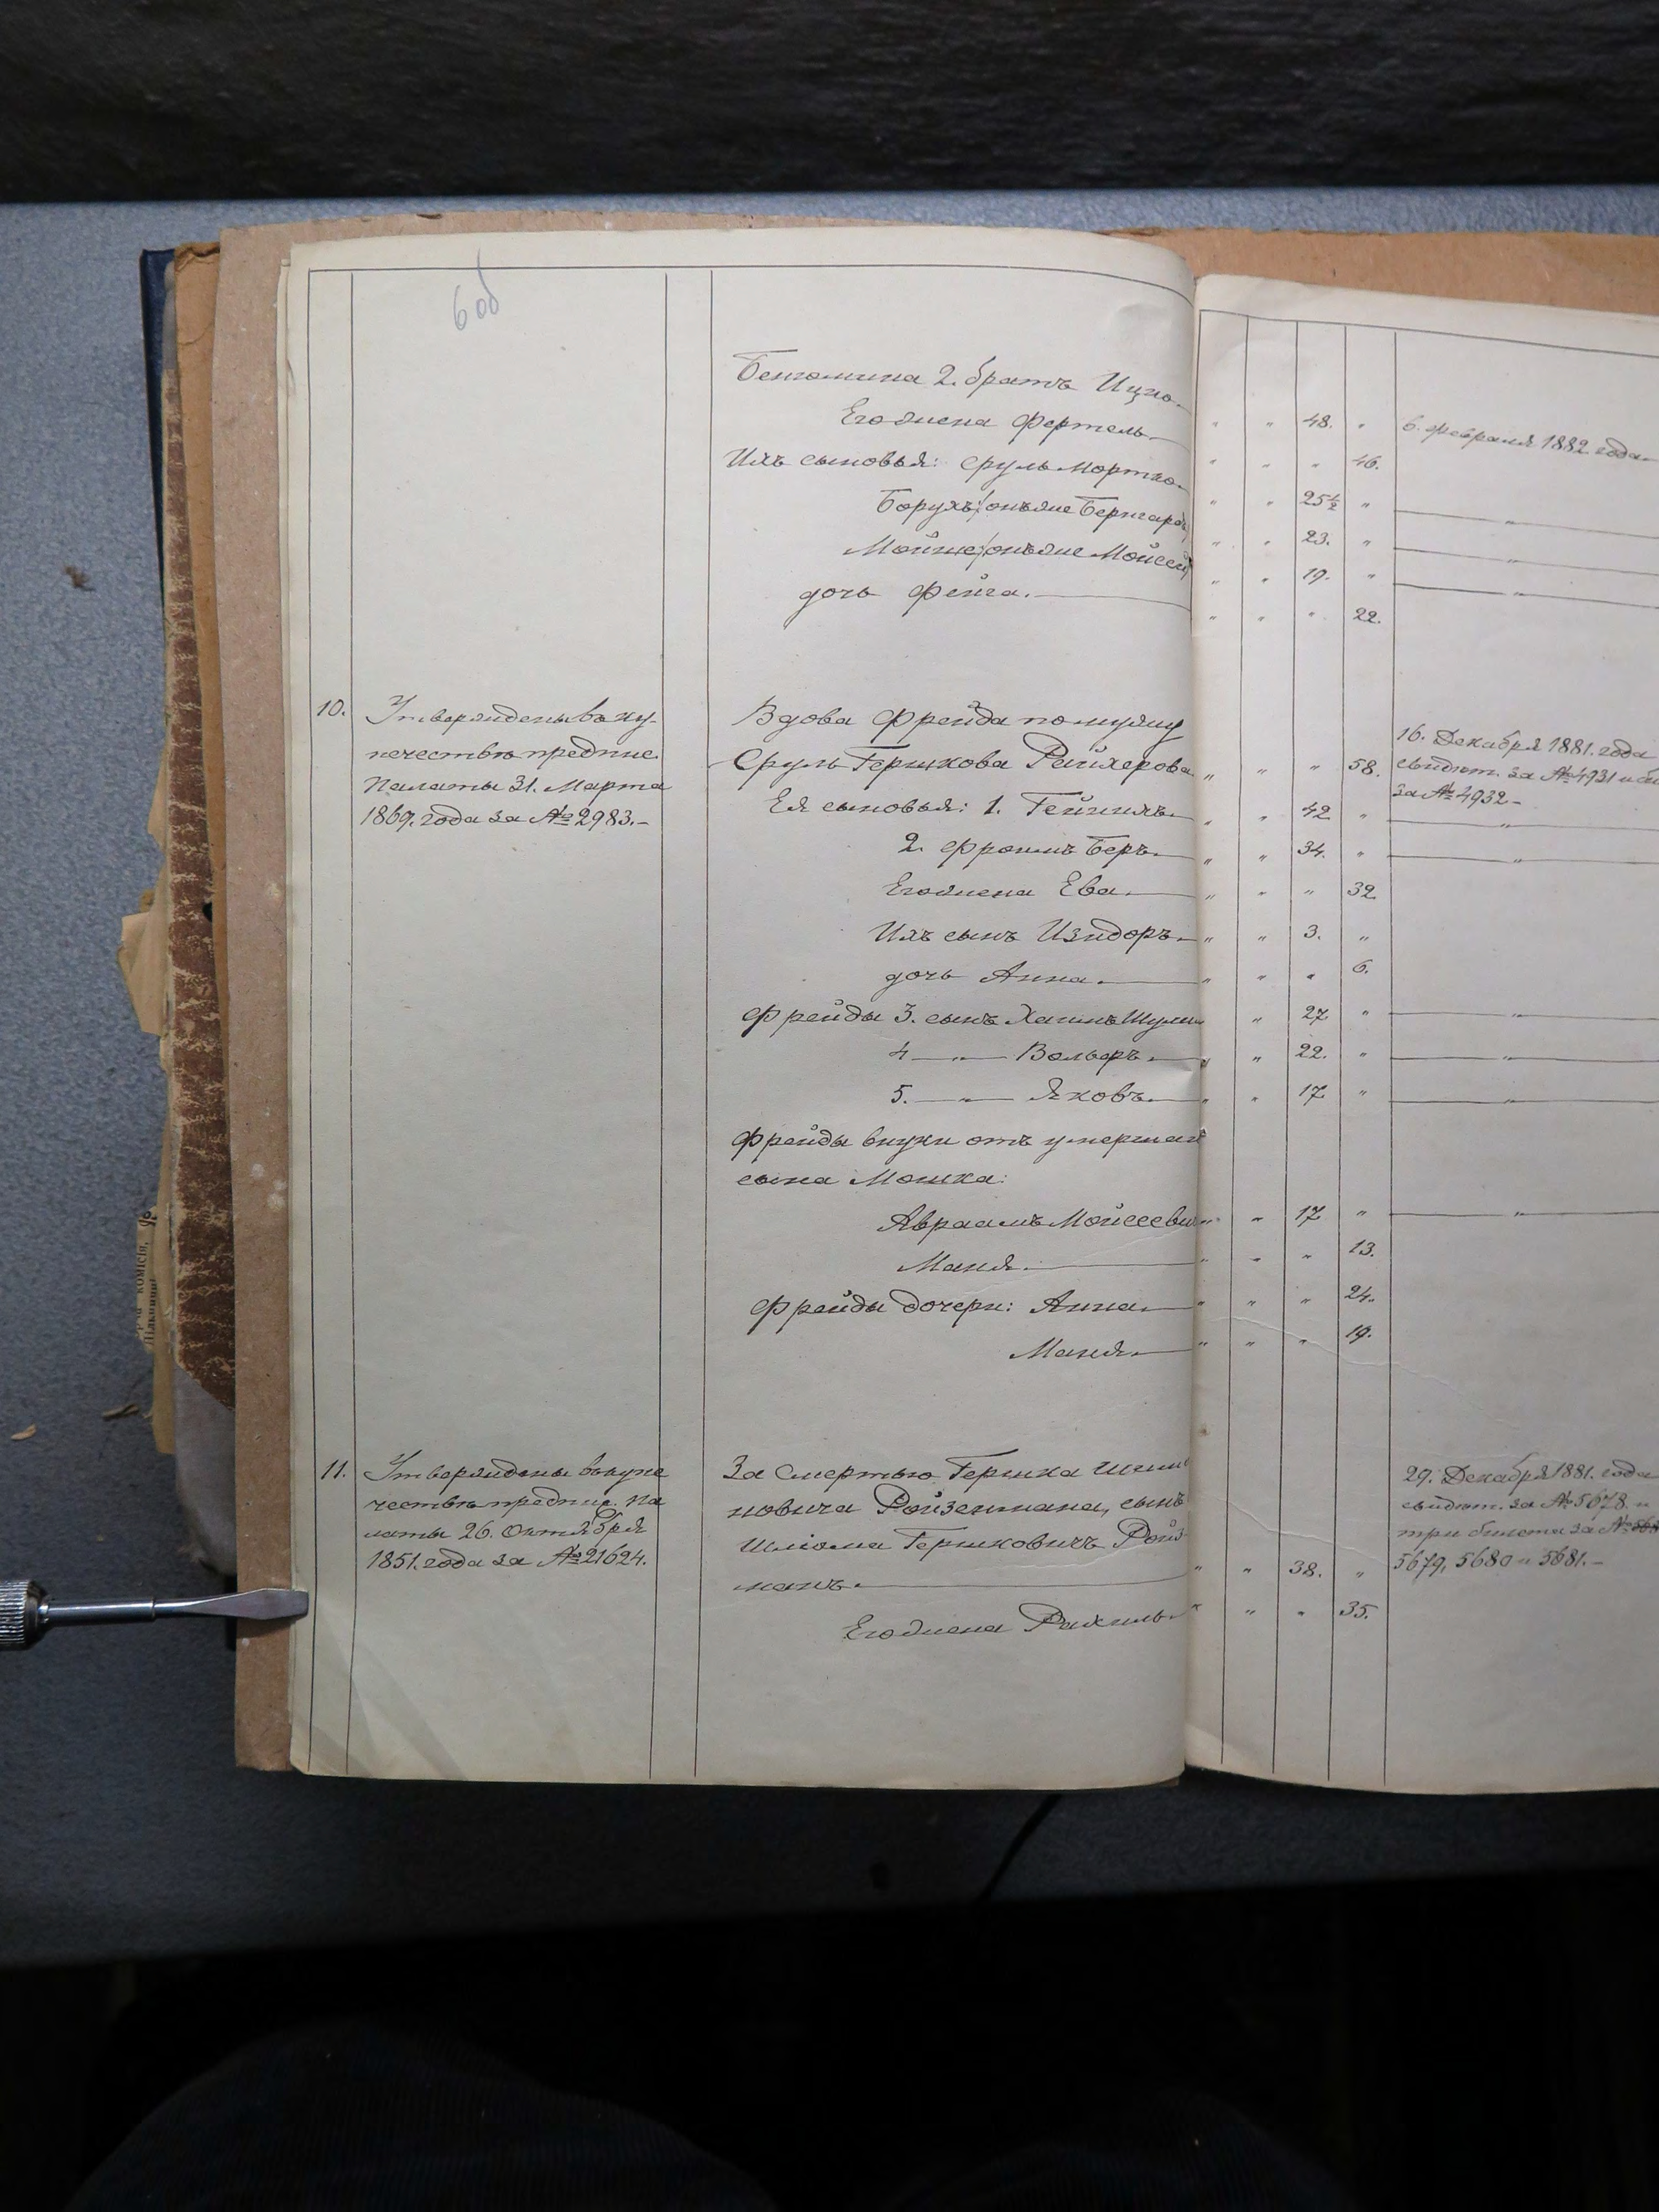 6 об
Бенюмина 2. братъ Ицко. " " 48. " 6. февраля 1882 года
Его жена Фертель " " " 46.
Ихъ сыновья: Сруль Мортко " " 25½ " "
Борухъ/онъ же Бернгардъ " " 23. " "
Мойше/онъ же Мойсей " " 19. " "
дочь Фейга. " " " 22.
10. Утверждены въ ку-
печествѣ предпис.
Палаты 31. Марта
1869. года за № 2983.-
Вдова Фрейда по мужу
Сруль Гершкова Рейхерова " " " 58.
16. Декабря 1881. года
свидѣт. за № 4931 и
за № 4932-
Ея сыновья: 1. " " 42 " "
2. Фроимъ Беръ " " 34. " "
Его жена Ева. " " " 32.
Ихъ сынъ Изидоръ " " 3. "
дочь Анна " " " 6.
Фрейды 3. сынъ Хаимъ " 27 " "
4 " Вольфъ " " 22. " "
5. " Яковъ " " 17 " "
Фрейды внуки отъ умершаго
сына Мошка:
Авраамъ Мойсеевъ " " 17 " "
Маня. " " " 13.
Фрейды дочери: Анна " " " 24.
Маня " " " 19.
11. Утверждены въ купе
чествѣ предпис. Па
латы 26. Октября
1851. года за № 21624.
За смертью Гершка
новича Ройзенмана, сынъ
Шлиома Гершковичъ Ройз
манъ. " " 38. "
29. Декабря 1881. года
свидѣт. за № 5678. и
три билета за №
5679, 5680 и 5681.-
Его жена Рахиль " " " 35.